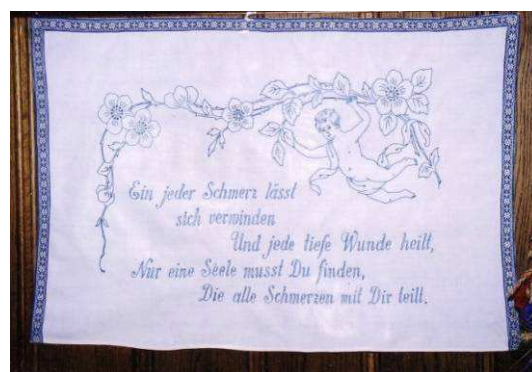 Ein jeder Schmerz lässt
sich verwinden
Und jede tiefe Wunde heilt,
Nur eine Seele musst Du finden,
Die alle Schmerzen mit Dir teilt.